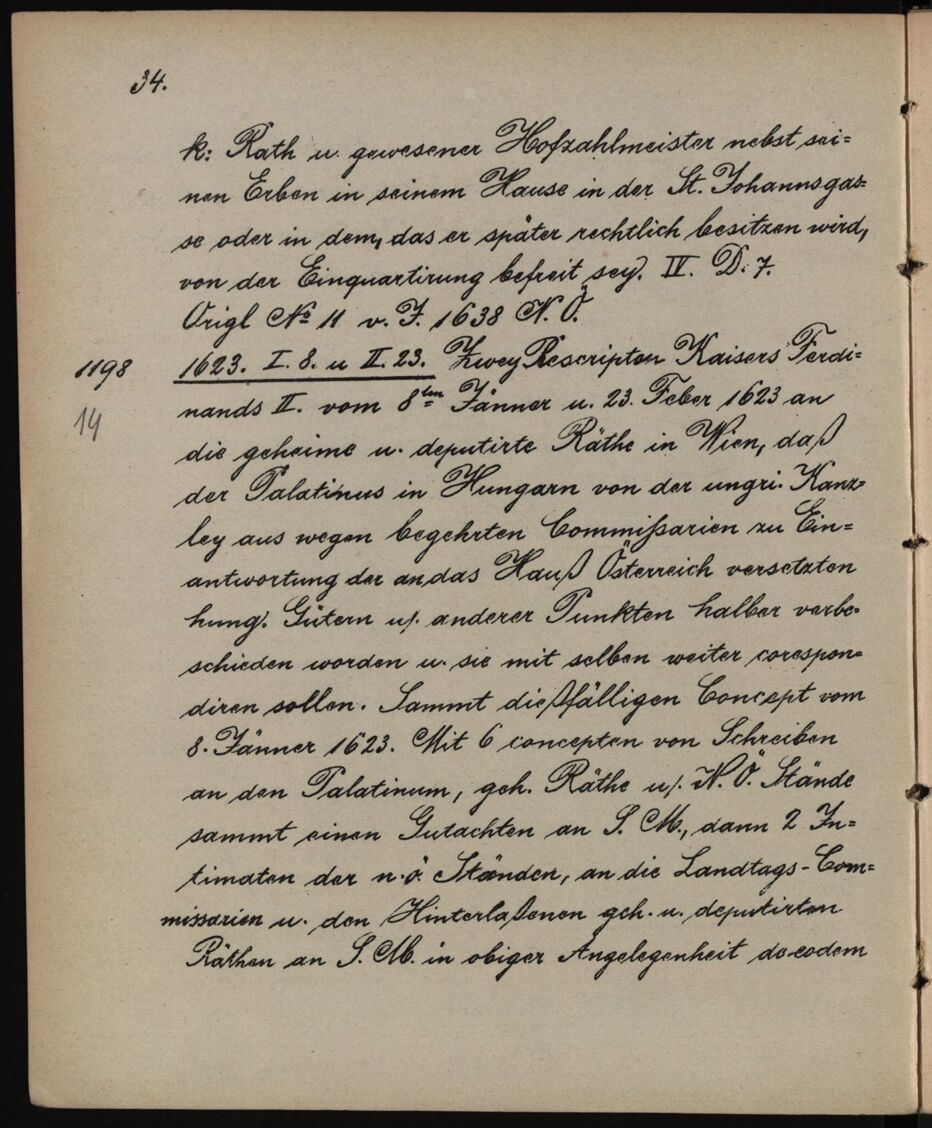 34.
k: Rath u. gewesener Hofzahlmeister nebst sei=
nen Erben in seinem Hause in der St. Johannsgas=
se oder in dem, das er später rechtlich besitzen wird,
von der Einquartirung befreit sey. IV. D. 7.
Origl No 11 v. J. 1638 N. Ö.
1198 1623. I. 8. u II. 23. Zwey Rescripten Kaisers Ferdi=
14 nands II. vom 8ten Jänner u. 23. Feber 1623 an
die geheime u. deputirte Räthe in Wien, daß
der Palatinus in Hungarn von der ungri. Kanz=
ley aus wegen begehrten Commißarien zu Ein=
antwortung der an das Hauß Österreich versetzten
hung. Gütern u/. anderer Punkten halber verbe=
schieden worden u. sie mit selben weiter corespon=
diren sollen. Sammt dießfälligen Concept vom
8. Jänner 1623. Mit 6 concepten von Schreiben
an den Palatinum, geh. Räthe u/. N. Ö. Stände
sammt einen Gutachten an S. M., dann 2 In=
timaten der n. ö. Ständen, an die Landtags-Com=
missarien u. den Hinterlaßenen geh. u. deputirten
Räthen an S. M. in obiger Angelegenheit do eodem